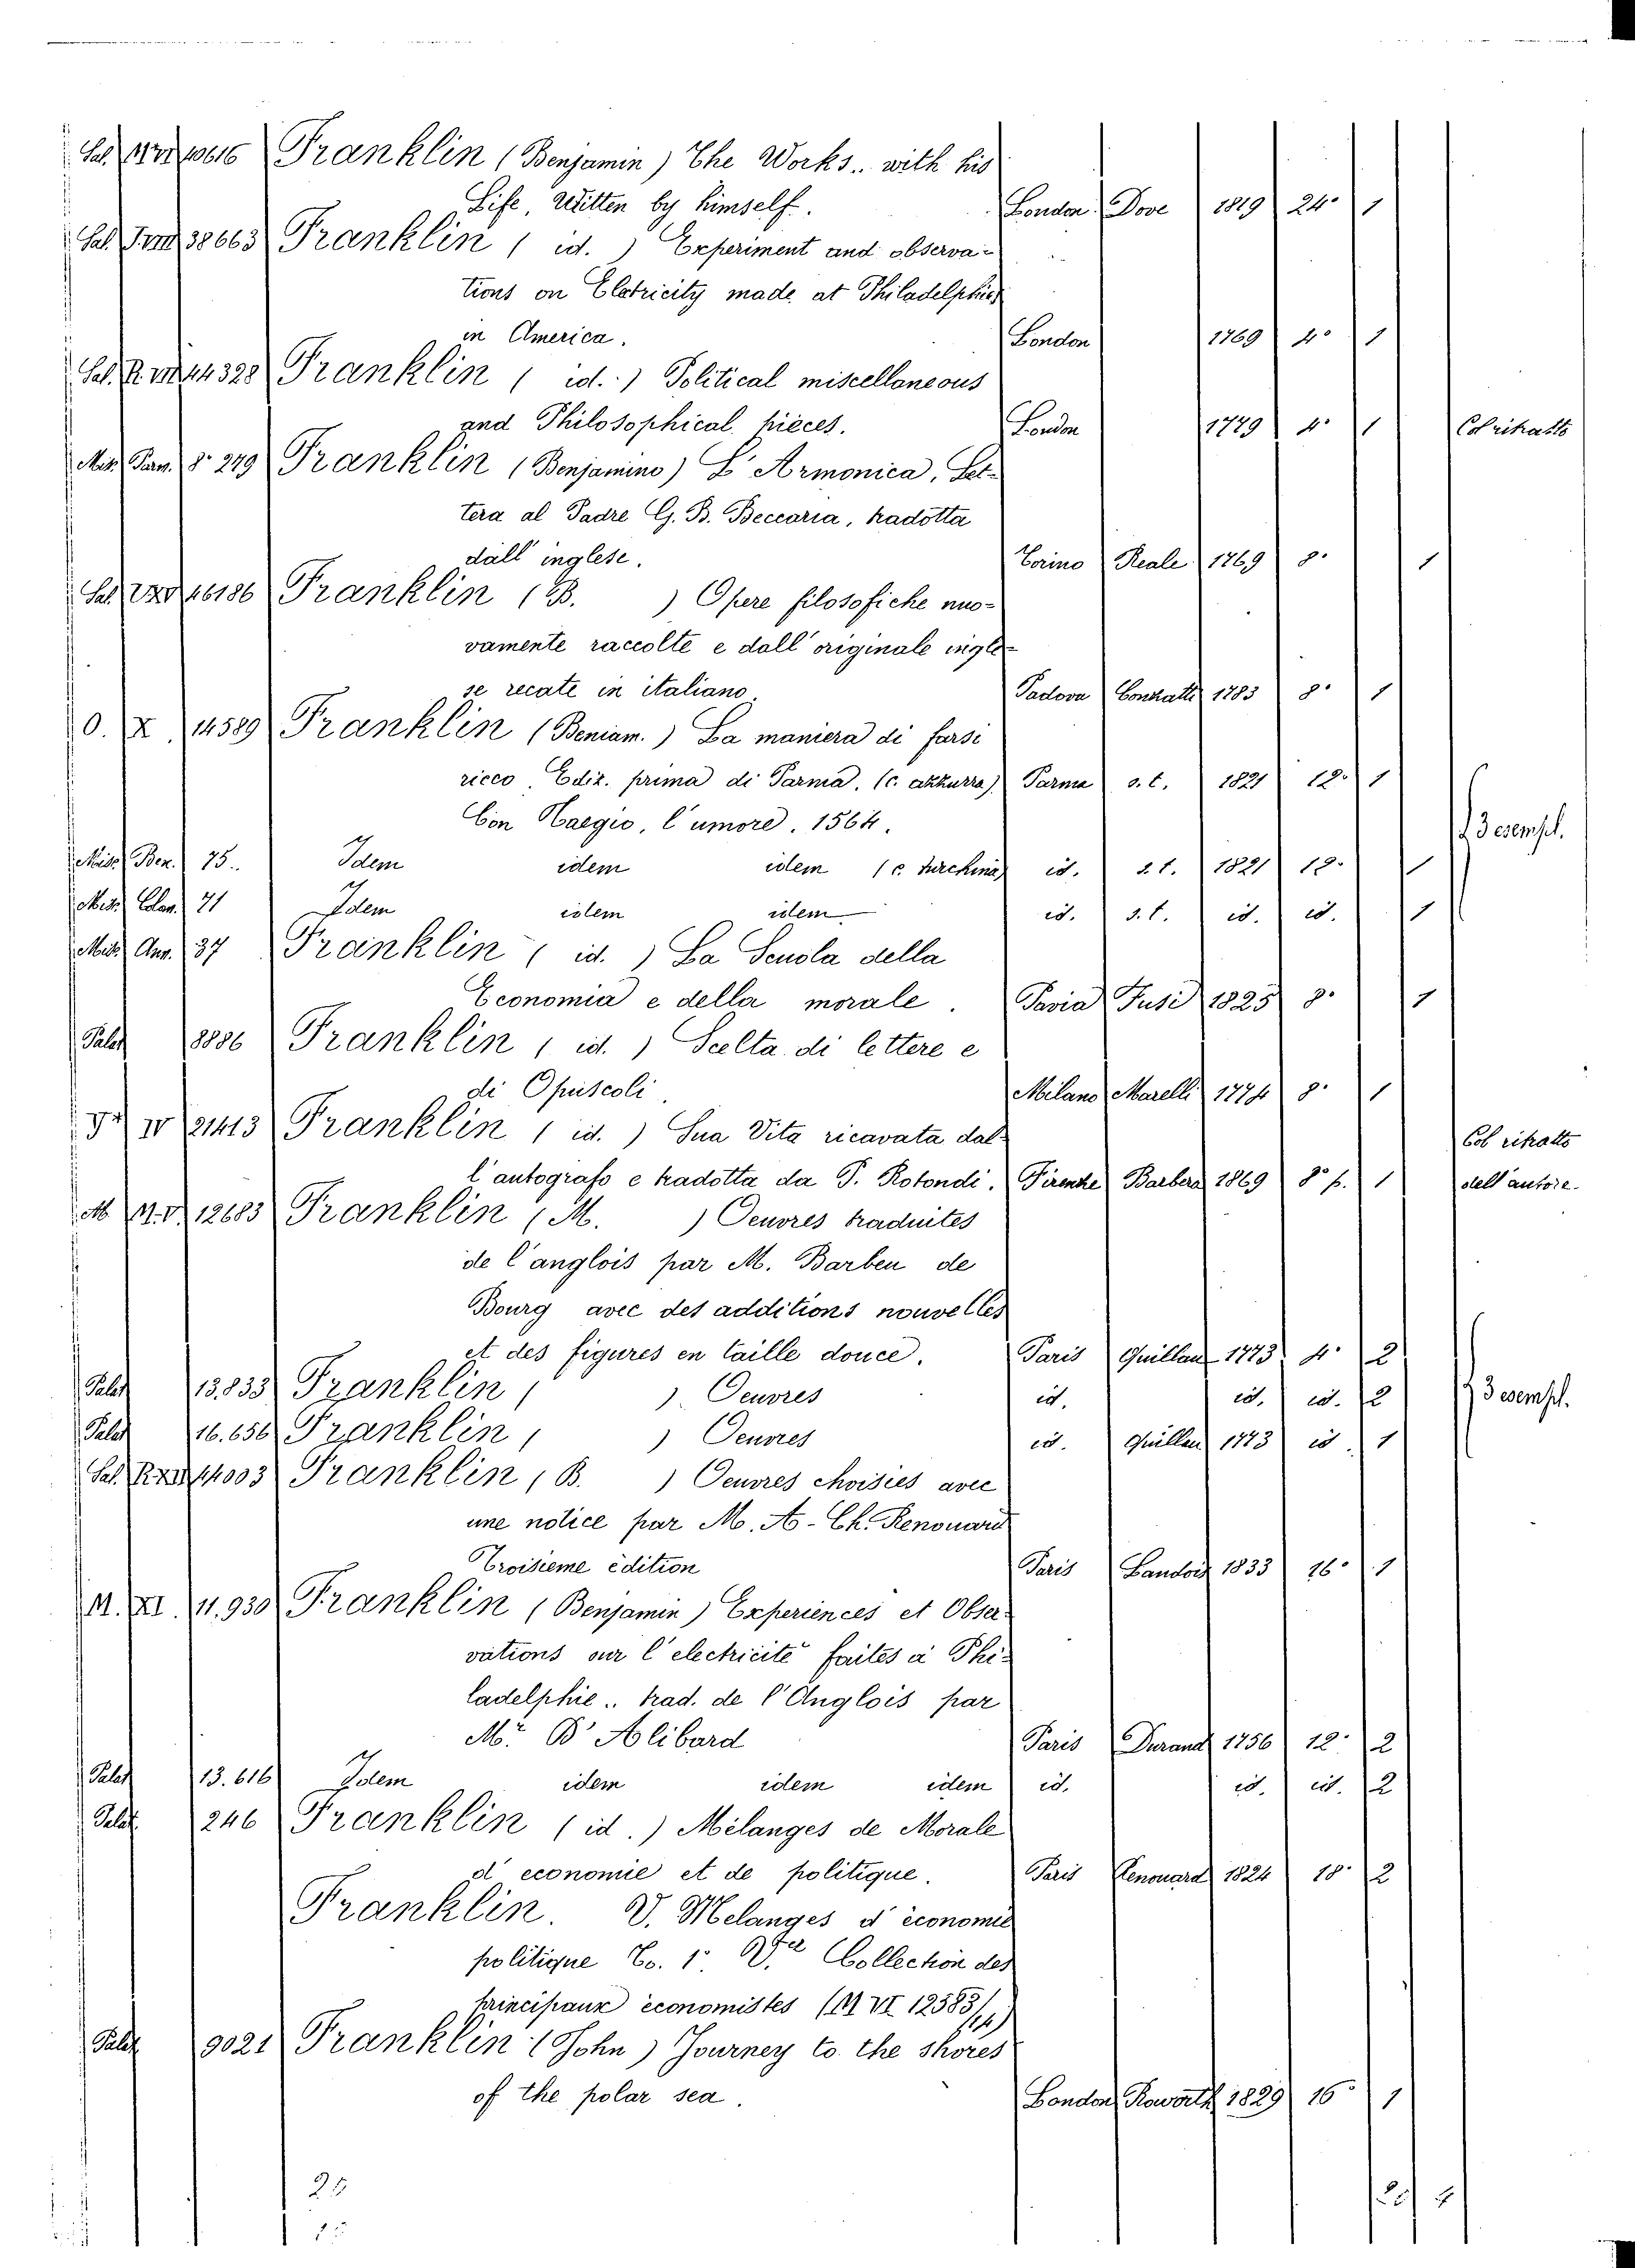 Franklin (Benjamin) The Works.. with his
Life, Written by himself. London Dove 1819 24° 1
Sal. 38663 Franklin ( id. ) Experiment and observa-
tions on Eletricity made at Philadelphia
in America. London 1769 4° 1
Sal. 44328 Franklin ( id. ) Political miscellaneous
and Philosophical pièces. London 1779 4° 1 Col ritratto
Misc. Fam. 8° 279 Franklin (Benjamino) L'Armonica, Let-
tera al Padre G. B. Beccaria, tradotta
dall' inglese. Torino Reale 1769 8° 1
Sal. 46186 Franklin (B. ) Opere filosofiche nuo-
vamente raccolte e dall' originale ingle-
se recate in italiano. Padova Conzatti 1783 8° 1
O. X. 14589 Franklin (Beniam.) La maniera di farsi
ricco. Ediz. prima di Parma. (c. azzurra) Parma s. t. 1821 12° 1
Con Haegio, l'umore. 1564.
3 esempl.
Misc. Ben. 75. Idem idem idem (c. turchina) id. s. t. 1821 12° 1
Misc. Colom. 71 Idem idem idem id. s. t. id. id. 1
Misc. Ann. 37 Franklin ( id. ) La Scuola della
Economia e della morale. Pavia Fusi 1825 8° 1
Palat. 8886 Franklin ( id. ) Scelta di lettere e
di Opuscoli. Milano Marelli 1774 8° 1
IV 21413 Franklin ( id. ) Sua Vita ricavata dal-
l'autografo e tradotta da P. Rotondi. Firenze Barbera 1869 8° p. 1 Col ritratto dell'autore.
12683 Franklin (M. ) Oeuvres traduites
de l'anglois par M. Barben de
Bourg avec des additions nouvelles
et des figures en taille douce. Paris Quillau 1773 4° 2
Palat. 13.833 Franklin ( ) Oeuvres id. id. id. 2 3 esempl.
Palat. 16.656 Franklin ( ) Oeuvres id. Quillau 1773 id. 1
Sal. 44003 Franklin (B. ) Oeuvres choisies avec
une notice par M. A-Ch. Renouard
Troisieme èdition Paris 1833 16° 1
M. XI. 11.930 Franklin (Benjamin) Experiences et Obser-
vations sur l'electricité faites à Phi-
ladelphie.. trad. de l'Anglois par
Mr. D'Alibard Paris Durand 1756 12° 2
Palat. 13.616 Idem idem idem idem id. id. id. 2
Palat. 246 Franklin ( id. ) Mélanges de Morale
d'economie et de politique. Paris Renouard 1824 18° 2
Franklin. V. Melanges d'èconomie
politique To. 1° Collection des
principaux èconomistes (M VI 12383/14)
Palat. 9021 Franklin (John) Journey to the shores
of the polar sea. London Roworth 1829 16° 1